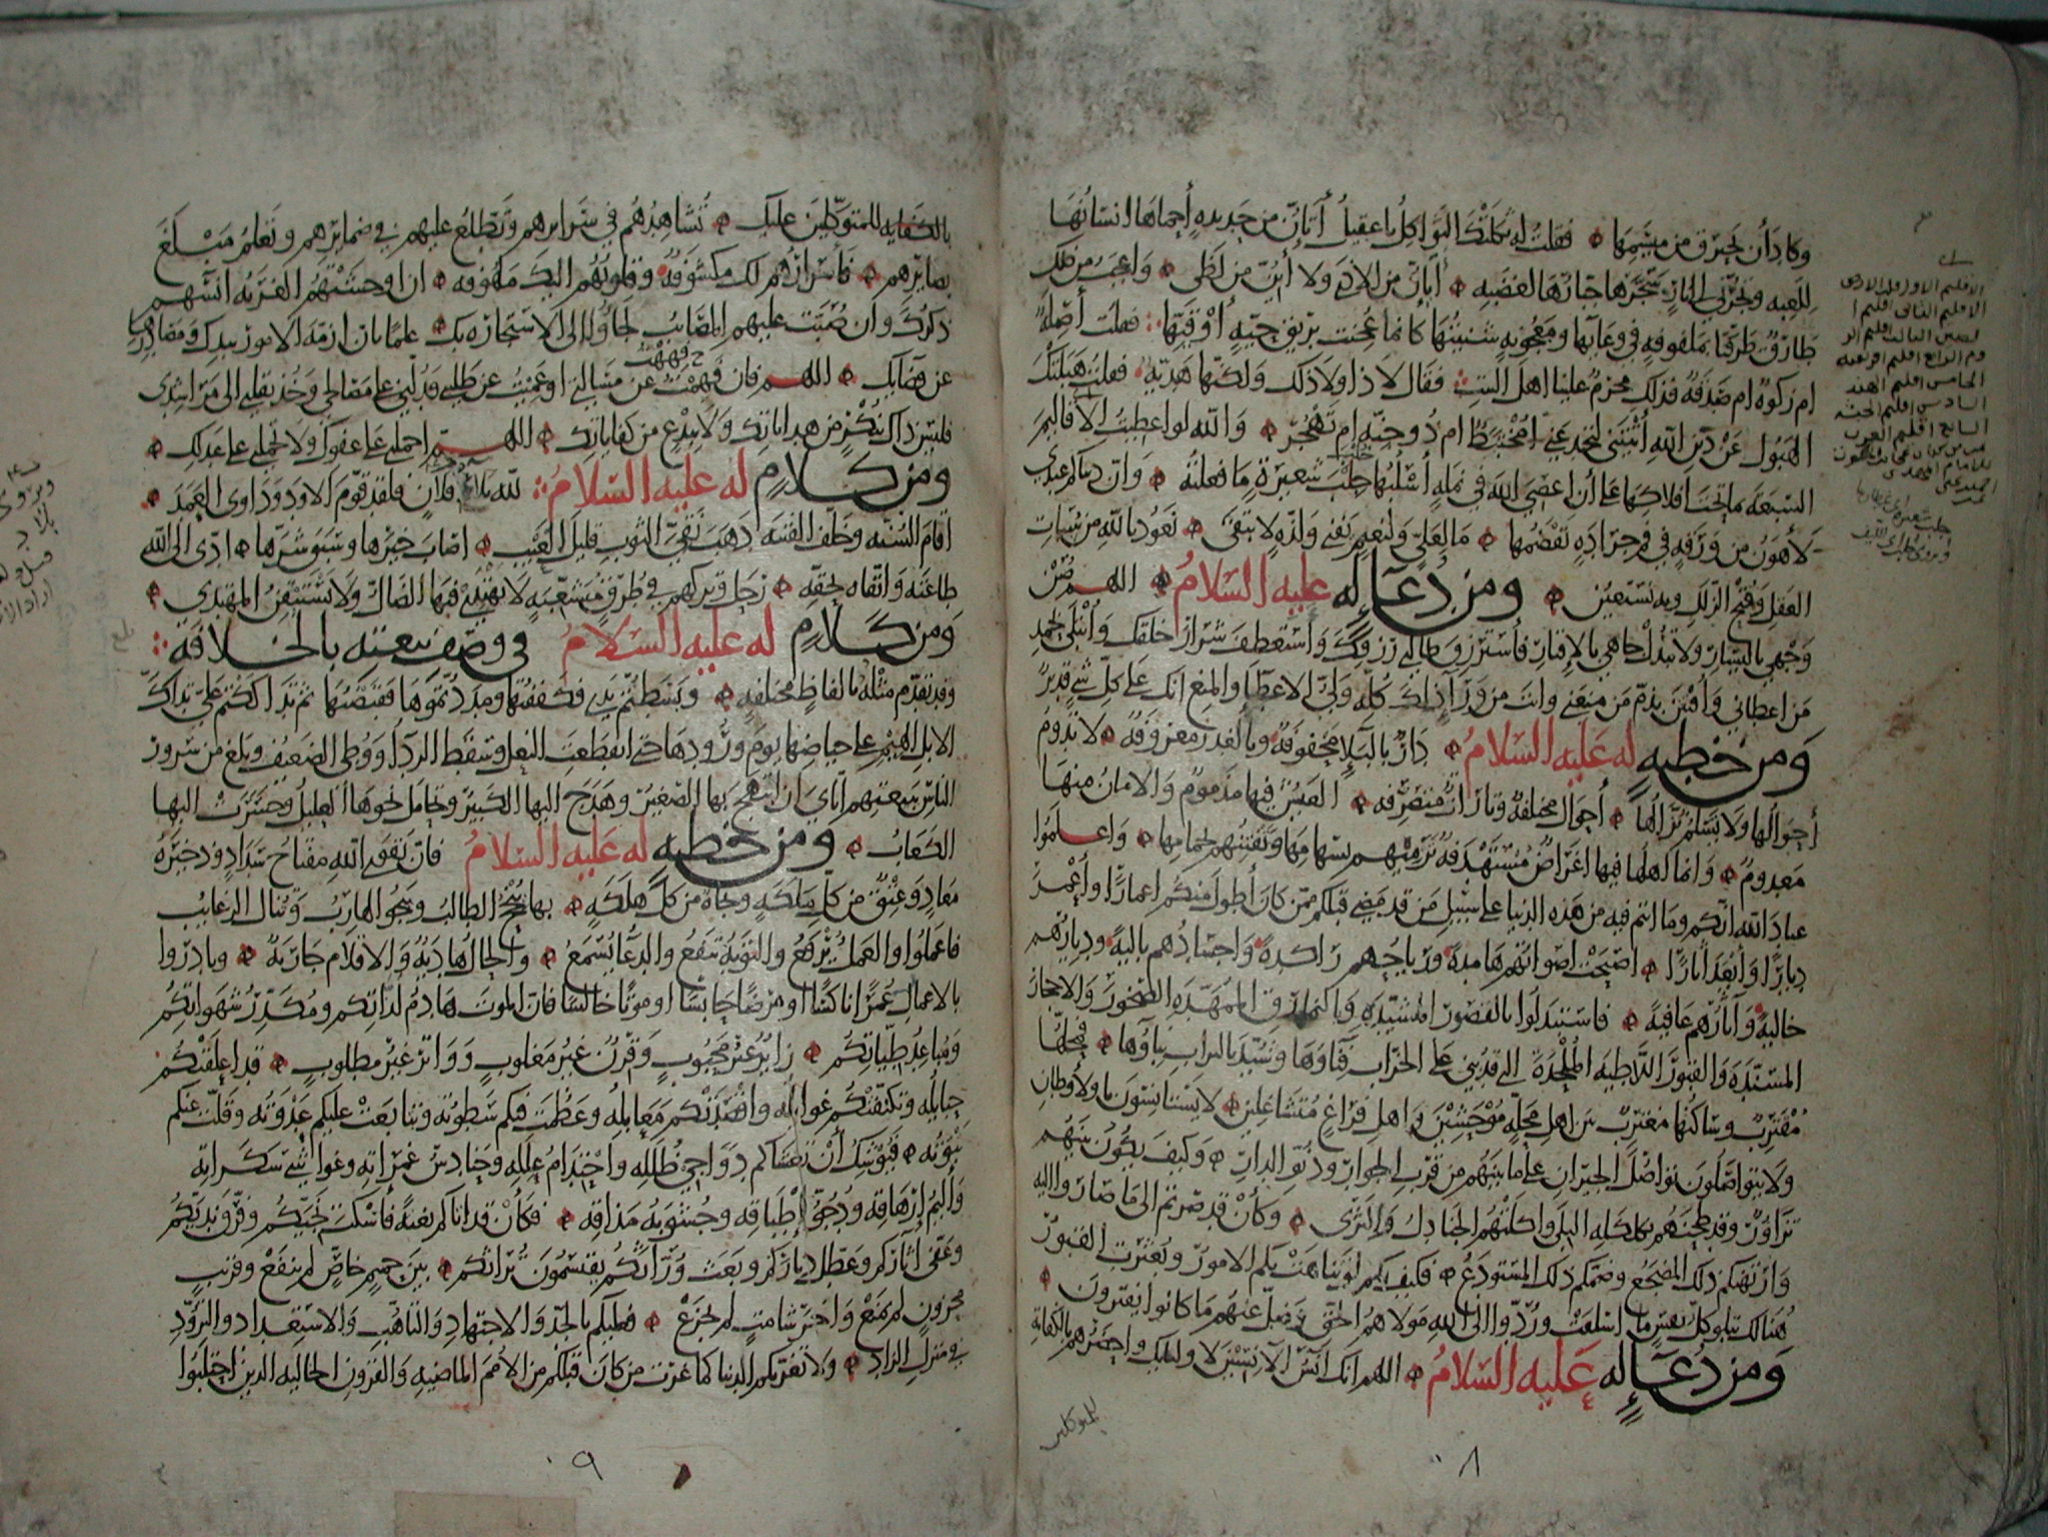 وكاد أن يحترق من ميسمها فقلت له ثكلتك الثواكل يا عقيل أتئن من حديدة أحماها انسانها
للعبه وتجرني الى نار سجرها جبارها لغضبه أتئن من الاذى ولا أئن من لظى واعجب من ذلك
طارق طرقنا بملفوفة في وعائها ومعجونة شنئتها كانما عجنت بريق حية او قيئها فقلت أصلة
ام زكوة ام صدقة فذلك محرم علينا اهل البيت فقال لا ذا ولا ذلك ولكنها هدية فقلت هبلتك
الهبول عن دين الله أتيتني لتخدعني امختبط ام ذو جنة ام تهجر والله لو اعطيت الاقاليم
السبعة بما تحت افلاكها على أن اعصي الله في نملة أسلبها جلب شعيرة ما فعلته وان دنياكم عندي
لأهون من ورقة في فم جرادة تقضمها ما لعلي ولنعيم يفنى ولذة لا تبقى نعوذ بالله من سبات
العقل وقبح الزلل وبه نستعين ومن دعا له عليه السلام اللهم صن
وجهي باليسار ولا تبذل جاهي بالإقتار فأسترزق طالبي رزقك واستعطف شرار خلقك وأبتلى بحمد
من اعطاني وأفتتن بذم من منعني وانت من ورآء ذلك كله ولي الاعطاء والمنع انك على كل شيء قدير
ومن خطبة له عليه السلام دار بالبلاء محفوفة وبالغدر معروفة لا تدوم
أحوالها ولا يسلم نزالها أحوال مختلفة وتارات متصرفة العيش فيها مذموم والامان منها
معدوم وانما اهلها فيها اغراض مستهدفة ترميهم بسهامها وتفنيهم بحمامها واعلموا
عباد الله انكم وما انتم فيه من هذه الدنيا على سبيل من قد مضى قبلكم ممن كان أطول منكم اعمارا وأعمر
ديارا وأبعد آثارا اصبحت اصواتهم هامدة ورياحهم راكدة واجسادهم بالية وديارهم
خالية وآثارهم عافية فاستبدلوا بالقصور المشيدة وبالنمارق الممهدة الصخور والاحجار
المسندة والقبور اللاطية الملحدة التي قد بني على الخراب فناؤها وشيد بالتراب بناؤها فمحلها
مقترب وساكنها مغترب بين اهل محلة موحشين واهل فراغ متشاغلين لا يستانسون بالاوطان
ولا يتواصلون تواصل الجيران على ما بينهم من قرب الجوار ودنو الدار وكيف يكون بينهم
تزاور وقد طحنهم بكلكله البلى واكلتهم الجنادل والثرى وكأن قد صرتم الى ما صاروا اليه
وارتهنكم ذلك المضجع وضمكم ذلك المستودع فكيف بكم لو تناهت بكم الامور وبعثرت القبور
هنالك تبلو كل نفس ما اسلفت وردوا الى الله مولاهم الحق وضل عنهم ما كانوا يفترون
ومن دعا له عليه السلام اللهم انك آنس الآنسين لاوليائك واحضرهم بالكفاية
للمتوكلين
الاقليم الاول
الاقليم الثاني اقليم
الخامس اقليم الهند
السادس اقليم الحبشة
السابع اقليم العرب
٨٠
بالكفاية للمتوكلين عليك تشاهدهم في سرايرهم وتطلع عليهم في ضمايرهم وتعلم مبلغ
بصايرهم فأسرارهم لك مكشوفة وقلوبهم اليك ملهوفة ان اوحشتهم الغربة آنسهم
ذكرك وان صبت عليهم المصائب لجأوا الى الاستجارة بك علما بان ازمة الامور بيدك ومصادرها
عن قضايك اللهم فان فههت عن مسألتي او عميت عن طلبتي فدلني على مصالحي وخذ بقلبي الى مراشدي
فليس ذاك بنكر من هداياتك ولا ببدع من كفاياتك اللهم احملني على عفوك ولا تحملني على عدلك
ومن كلام له عليه السلام لله بلاد فلان فلقد قوم الاود وداوى العمد
اقام السنة وخلف الفتنة ذهب نقي الثوب قليل العيب اصاب خيرها وسبق شرها ادى الى الله
طاعته واتقاه بحقه رحل وتركهم في طرق متشعبة لا يهتدي فيها الضال ولا يستيقن المهتدي
ومن كلام له عليه السلام في وصف بيعته بالخلافة
وقد تقدم مثله بالفاظ مختلفة وبسطتم يدي فكففتها ومددتموها فقبضتها ثم تداككتم علي تداك
الابل الهيم على حياضها يوم ورودها حتى انقطعت النعل وسقط الرداء ووطئ الضعيف وبلغ من سرور
الناس ببيعتهم اياي ان ابتهج بها الصغير وهدج اليها الكبير وتحامل نحوها العليل وحسرت اليها
الكعاب ومن خطبة له عليه السلام فان تقوى الله مفتاح سداد وذخيرة
معاد وعتق من كل ملكة ونجاة من كل هلكة بها ينجح الطالب وينجو الهارب وتنال الرغايب
فاعملوا والعمل يرفع والتوبة تنفع والدعاء يسمع والحال هادية والاقلام جارية وبادروا
بالاعمال عمرا ناكسا او مرضا حابسا او موتا خالسا فان الموت هادم لذاتكم ومكدر شهواتكم
ومباعد طياتكم زائر غير محبوب وقرن غير مغلوب وواتر غير مطلوب قد اعلقتكم
حبايله وتكنفتكم غوائله واقصدتكم معابله وعظمت فيكم سطوته وتتابعت عليكم عدوته وقلت عنكم
نبوته فيوشك أن تغشاكم دواجي ظلله واحتدام علله وحنادس غمراته وغواشي سكراته
وأليم ارهاقه ودجو إطباقه وجشوبة مذاقه فكأن قد اتاكم بغتة فأسكت نجيكم وفرق نديكم
وعفى آثاركم وعطل دياركم وبعث ورآثكم يقتسمون تراثكم بين حميم خاص لم ينفع وقريب
محزون لم يمنع وآخر شامت لم يجزع فعليكم بالجد والاجتهاد والتأهب والاستعداد والتزود
في منزل الزاد ولا تغرنكم الدنيا كما غرت من كان قبلكم من الأمم الماضية والقرون الخالية الذين احتلبوا
٩٠